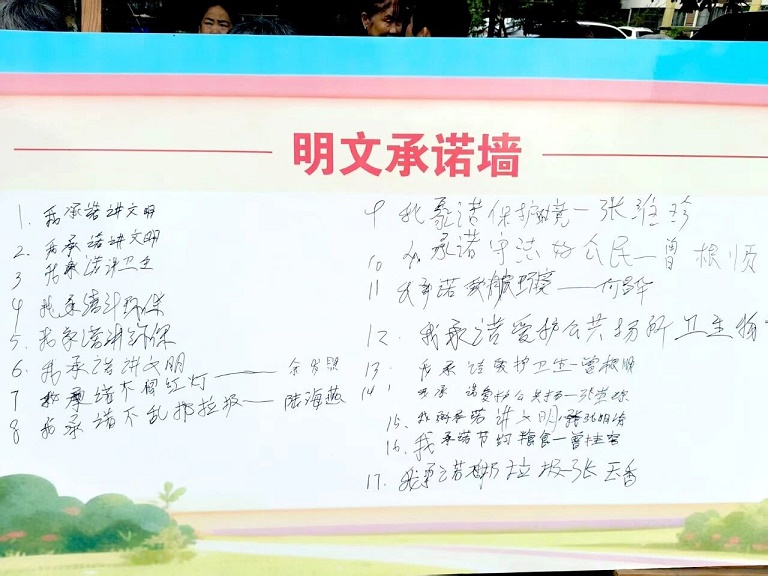 明文承诺墙
1. 我承诺讲文明
2. 我承诺讲文明
3 我承诺讲卫生
4 我承诺讲环保
5. 我承诺讲环保
6. 我承诺讲文明——余
7 我承诺不闯红灯
8 我承诺不乱扔垃圾——陆海燕
9 我承诺保护——张
10 承诺守法好公民—曾根顺
11 我承诺——何
12. 我承诺爱护公共场所卫生
13. 我承诺爱护卫生—曾根顺
14. 我承诺爱护公共场—张
15. 我承诺讲文明
16. 我承诺节约粮食—曾桂
17. 我承诺垃圾-张玉香